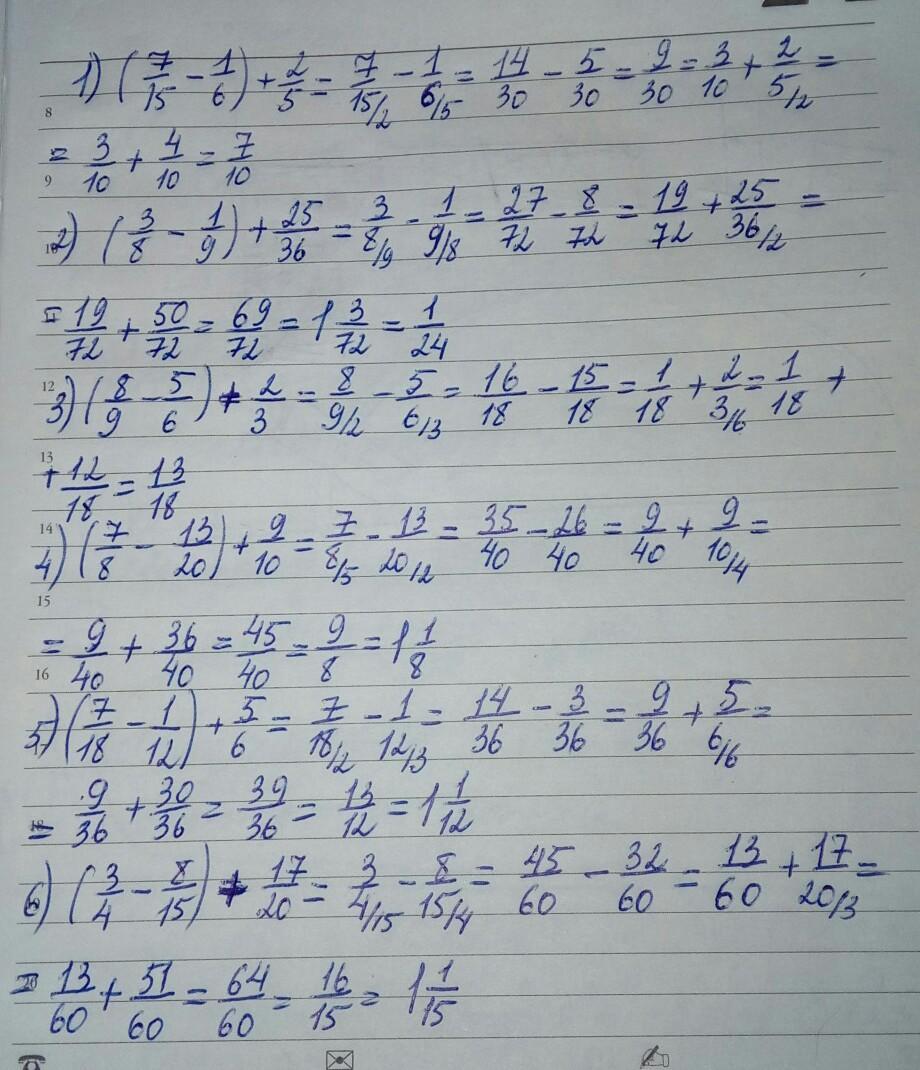 1) (7/15 - 1/6) + 2/5 = 7/15/2 - 1/6/5 = 14/30 - 5/30 = 9/30 = 3/10 + 2/5/2 =
8
= 3/10 + 4/10 = 7/10
9
2) (3/8 - 1/9) + 25/36 = 3/8/9 - 1/9/8 = 27/72 - 8/72 = 19/72 + 25/36/2 =
= 19/72 + 50/72 = 69/72 = 1 3/72 = 1/24
12
3) (8/9 - 5/6) + 2/3 = 8/9/2 - 5/6/3 = 16/18 - 15/18 = 1/18 + 2/3/6 = 1/18 +
13
+ 12/18 = 13/18
14
4) (7/8 - 13/20) + 9/10 = 7/8/5 - 13/20/2 = 35/40 - 26/40 = 9/40 + 9/10/4 =
15
= 9/40 + 36/40 = 45/40 = 9/8 = 1 1/8
16
5) (7/18 - 1/12) + 5/6 = 7/18/2 - 1/12/3 = 14/36 - 3/36 = 9/36 + 5/6/6 =
= 9/36 + 30/36 = 39/36 = 13/12 = 1 1/12
6) (3/4 - 8/15) + 17/20 = 3/4/15 - 8/15/4 = 45/60 - 32/60 = 13/60 + 17/20/3 =
= 13/60 + 51/60 = 64/60 = 16/15 = 1 1/15